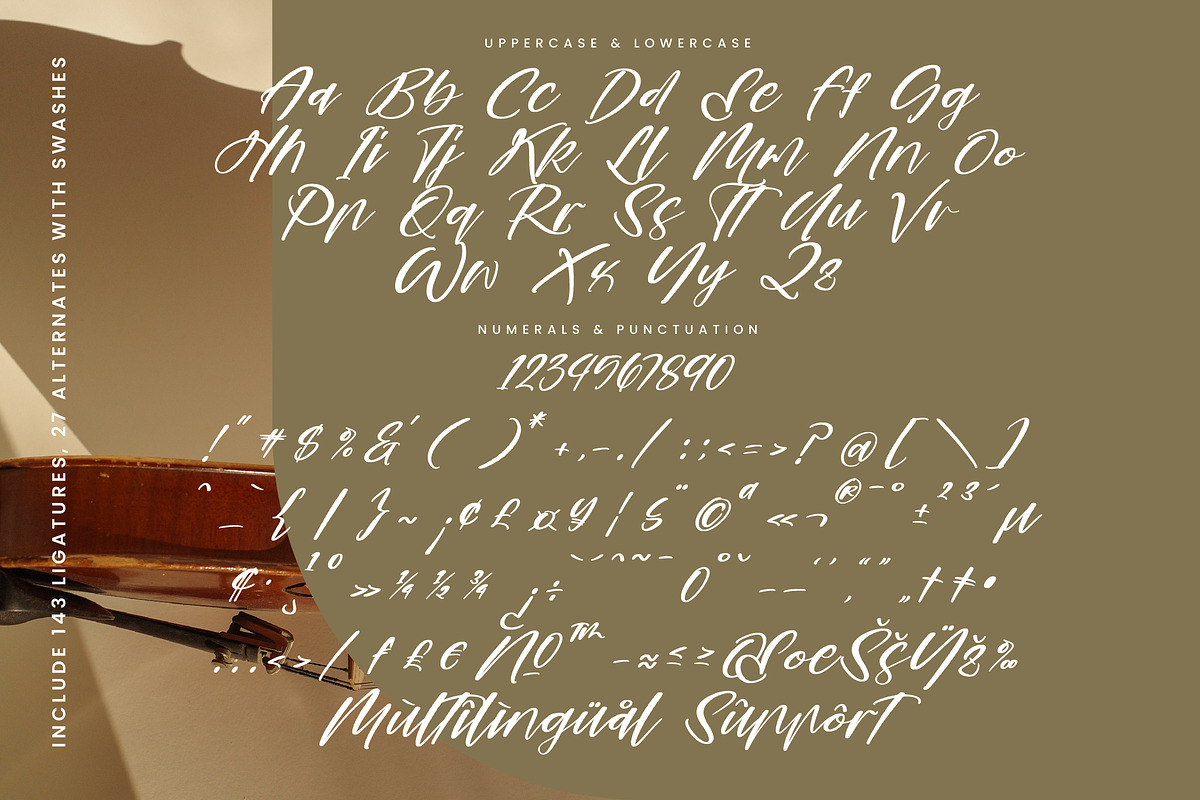 INCLUDE 143 LIGATURES, 27 ALTERNATES WITH SWASHES
UPPERCASE & LOWERCASE
Aa Bb Cc Dd Ee Ff Gg
Hh Ii Jj Kk Ll Mm Nn Oo
Pp Qq Rr Ss Tt Uu Vv
Ww Xx Yy Zz
NUMERALS & PUNCTUATION
1234567890
! " # $ % & ' ( ) * + , - . / : ; < = > ? @ [ \ ]
^ _ ` { | } ~ ¡ ¢ £ ¤ ¥ ¦ § ¨ © ª « ¬ ® ¯ ° ± ² ³ ´ µ
¶ · ¸ ¹ º » ¼ ½ ¾ ¿ ÷
... < > / ƒ £ € № ™ − ≈ ≤ ≥ Œ œ Š š Ÿ ž ‰
Mùltîlìngüål Sûppôrt